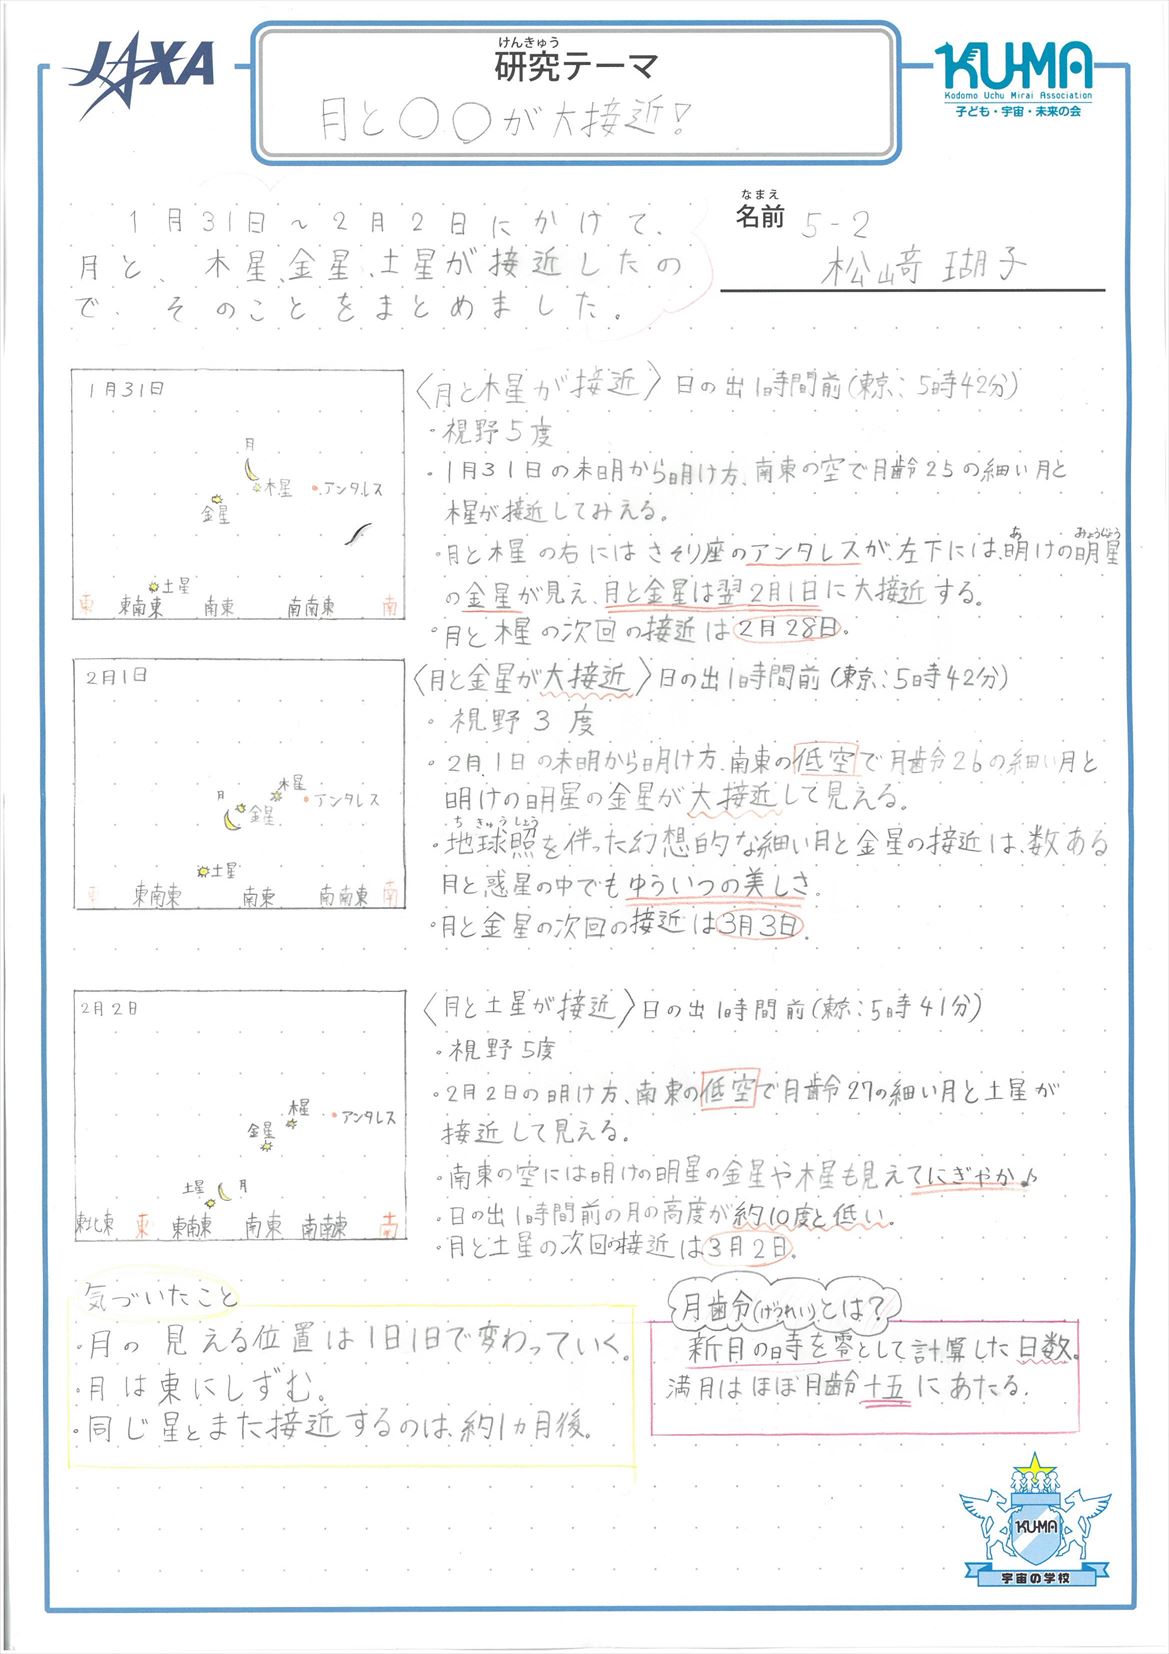 JAXA
けんきゅう
研究テーマ
月と〇〇が大接近!
KU-MA
Kodomo Uchu Mirai Association
子ども・宇宙・未来の会
なまえ
名前 5-2
松﨑 瑚子
1月31日~2月2日にかけて、
月と、木星、金星、土星が接近したの
で、そのことをまとめました。
1月31日
月
木星
アンタレス
金星
土星
東 東南東 南東 南南東 南
〈月と木星が接近〉日の出1時間前(東京:5時42分)
・視野5度
・1月31日の未明から明け方、南東の空で月齢25の細い月と
木星が接近してみえる。
・月と木星の右にはさそり座のアンタレスが、左下には、明けの明星
あ みょうじょう
の金星が見え、月と金星は翌2月1日に大接近する。
・月と木星の次回の接近は2月28日。
2月1日
木星
月
金星
アンタレス
土星
東 東南東 南東 南南東 南
〈月と金星が大接近〉日の出1時間前(東京:5時42分)
・視野3度
・2月1日の未明から明け方、南東の低空で月齢26の細い月と
明けの明星の金星が大接近して見える。
ちきゅうしょう
・地球照を伴った幻想的な細い月と金星の接近は、数ある
月と惑星の中でもゆういつの美しさ。
・月と金星の次回の接近は3月3日。
2月2日
木星
アンタレス
金星
土星
月
東北東 東 東南東 南東 南南東 南
〈月と土星が接近〉日の出1時間前(東京:5時41分)
・視野5度
・2月2日の明け方、南東の低空で月齢27の細い月と土星が
接近して見える。
・南東の空には明けの明星の金星や木星も見えてにぎやか♪
・日の出1時間前の月の高度が約10度と低い。
・月と土星の次回の接近は3月2日。
気づいたこと
・月の見える位置は1日1日で変わっていく。
・月は東にしずむ。
・同じ星とまた接近するのは、約1ヵ月後。
月齢(げつれい)とは?
新月の時を零として計算した日数。
満月はほぼ月齢十五にあたる。
KU-MA
宇宙の学校